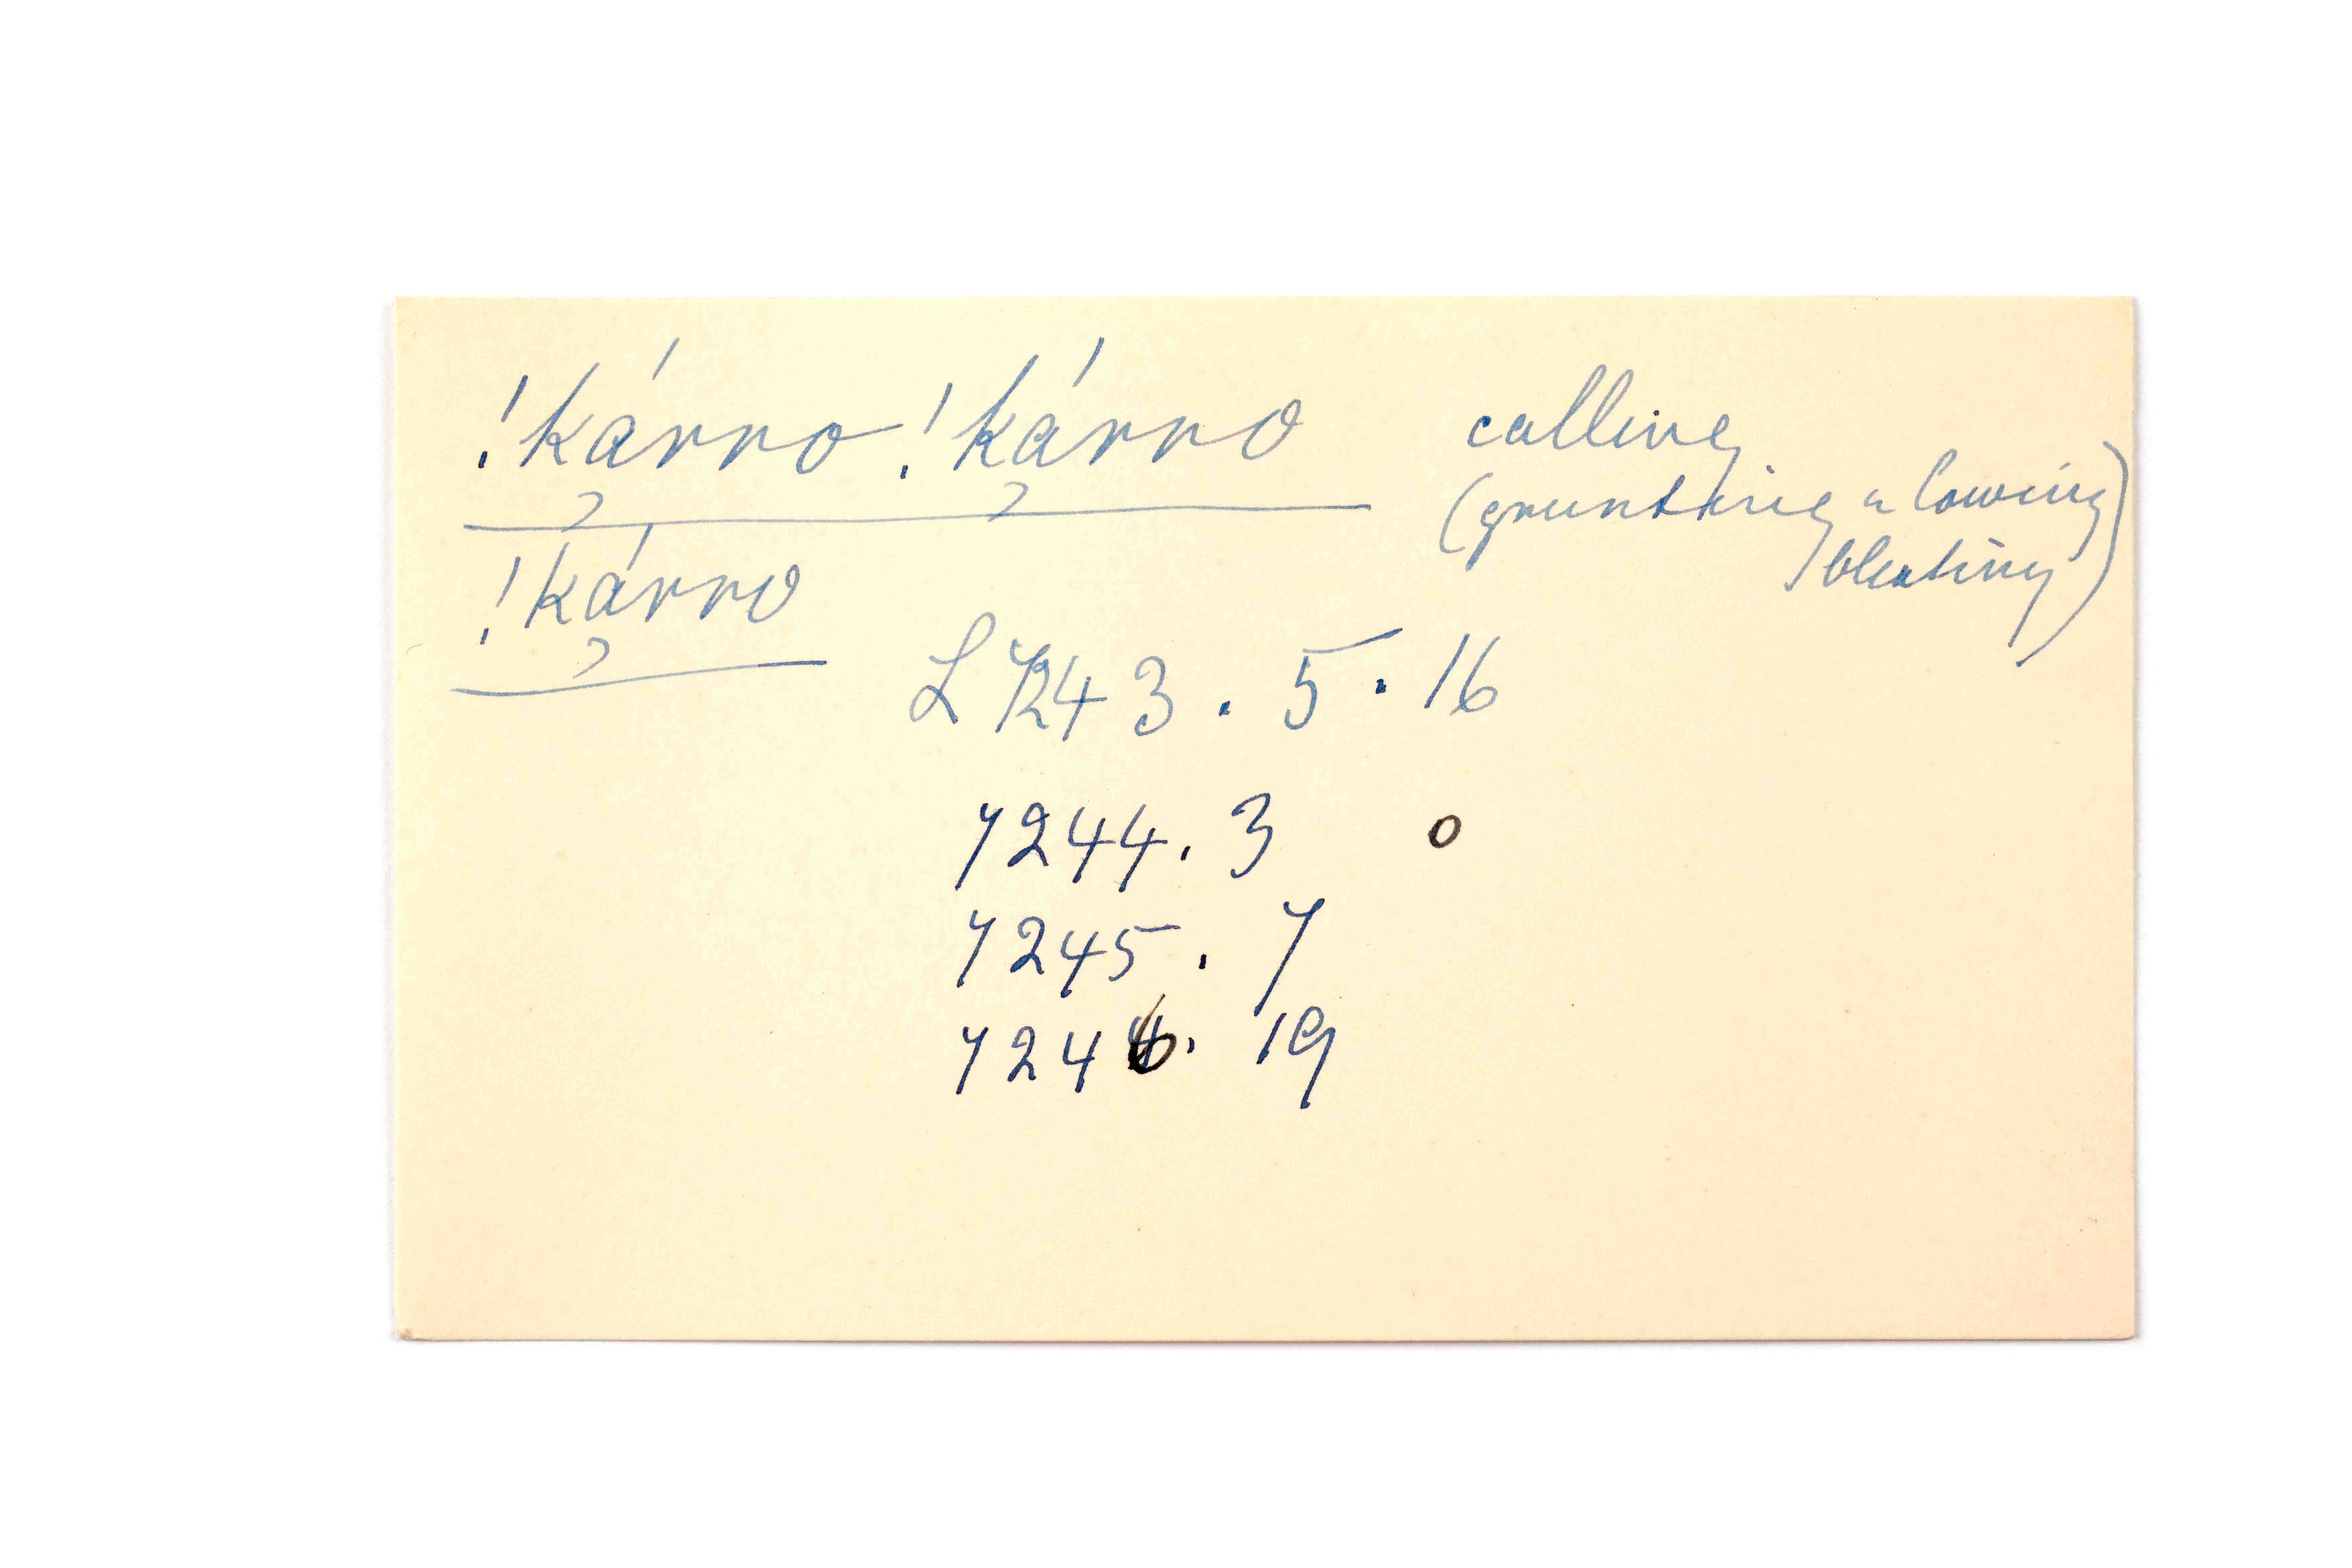 !kárro-!kárro calling
(grunting a lowing)
bleating
!kárro
L 7243. 5. 16
7244. 3 o
7245. 7
7246. 19